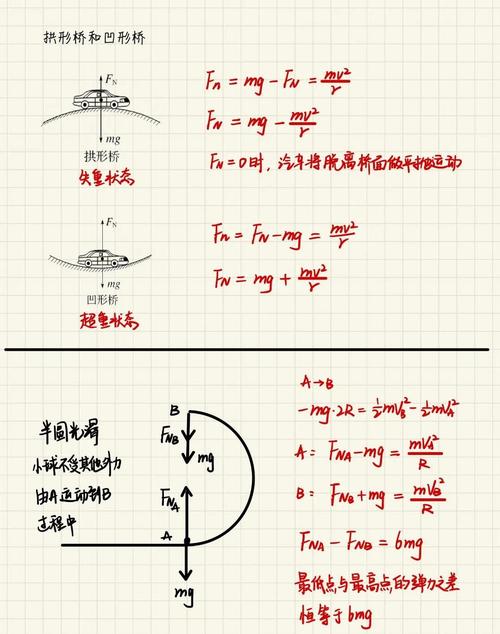 拱形桥和凹形桥
F_N
mg
拱形桥
失重状态
F_n = mg - F_N = \frac{mv^2}{r}
F_N = mg - \frac{mv^2}{r}
F_N = 0时，汽车将脱离桥面做平抛运动
F_N
mg
凹形桥
超重状态
F_n = F_N - mg = \frac{mv^2}{r}
F_N = mg + \frac{mv^2}{r}
半圆光滑
小球不受其他外力
由A运动到B
过程中
B
F_{NB}
mg
F_{NA}
A
mg
A→B
-mg·2R = \frac{1}{2}mV_B^2 - \frac{1}{2}mV_A^2
A: F_{NA} - mg = \frac{mV_A^2}{R}
B: F_{NB} + mg = \frac{mV_B^2}{R}
F_{NA} - F_{NB} = 6mg
最低点与最高点的弹力之差
恒等于6mg